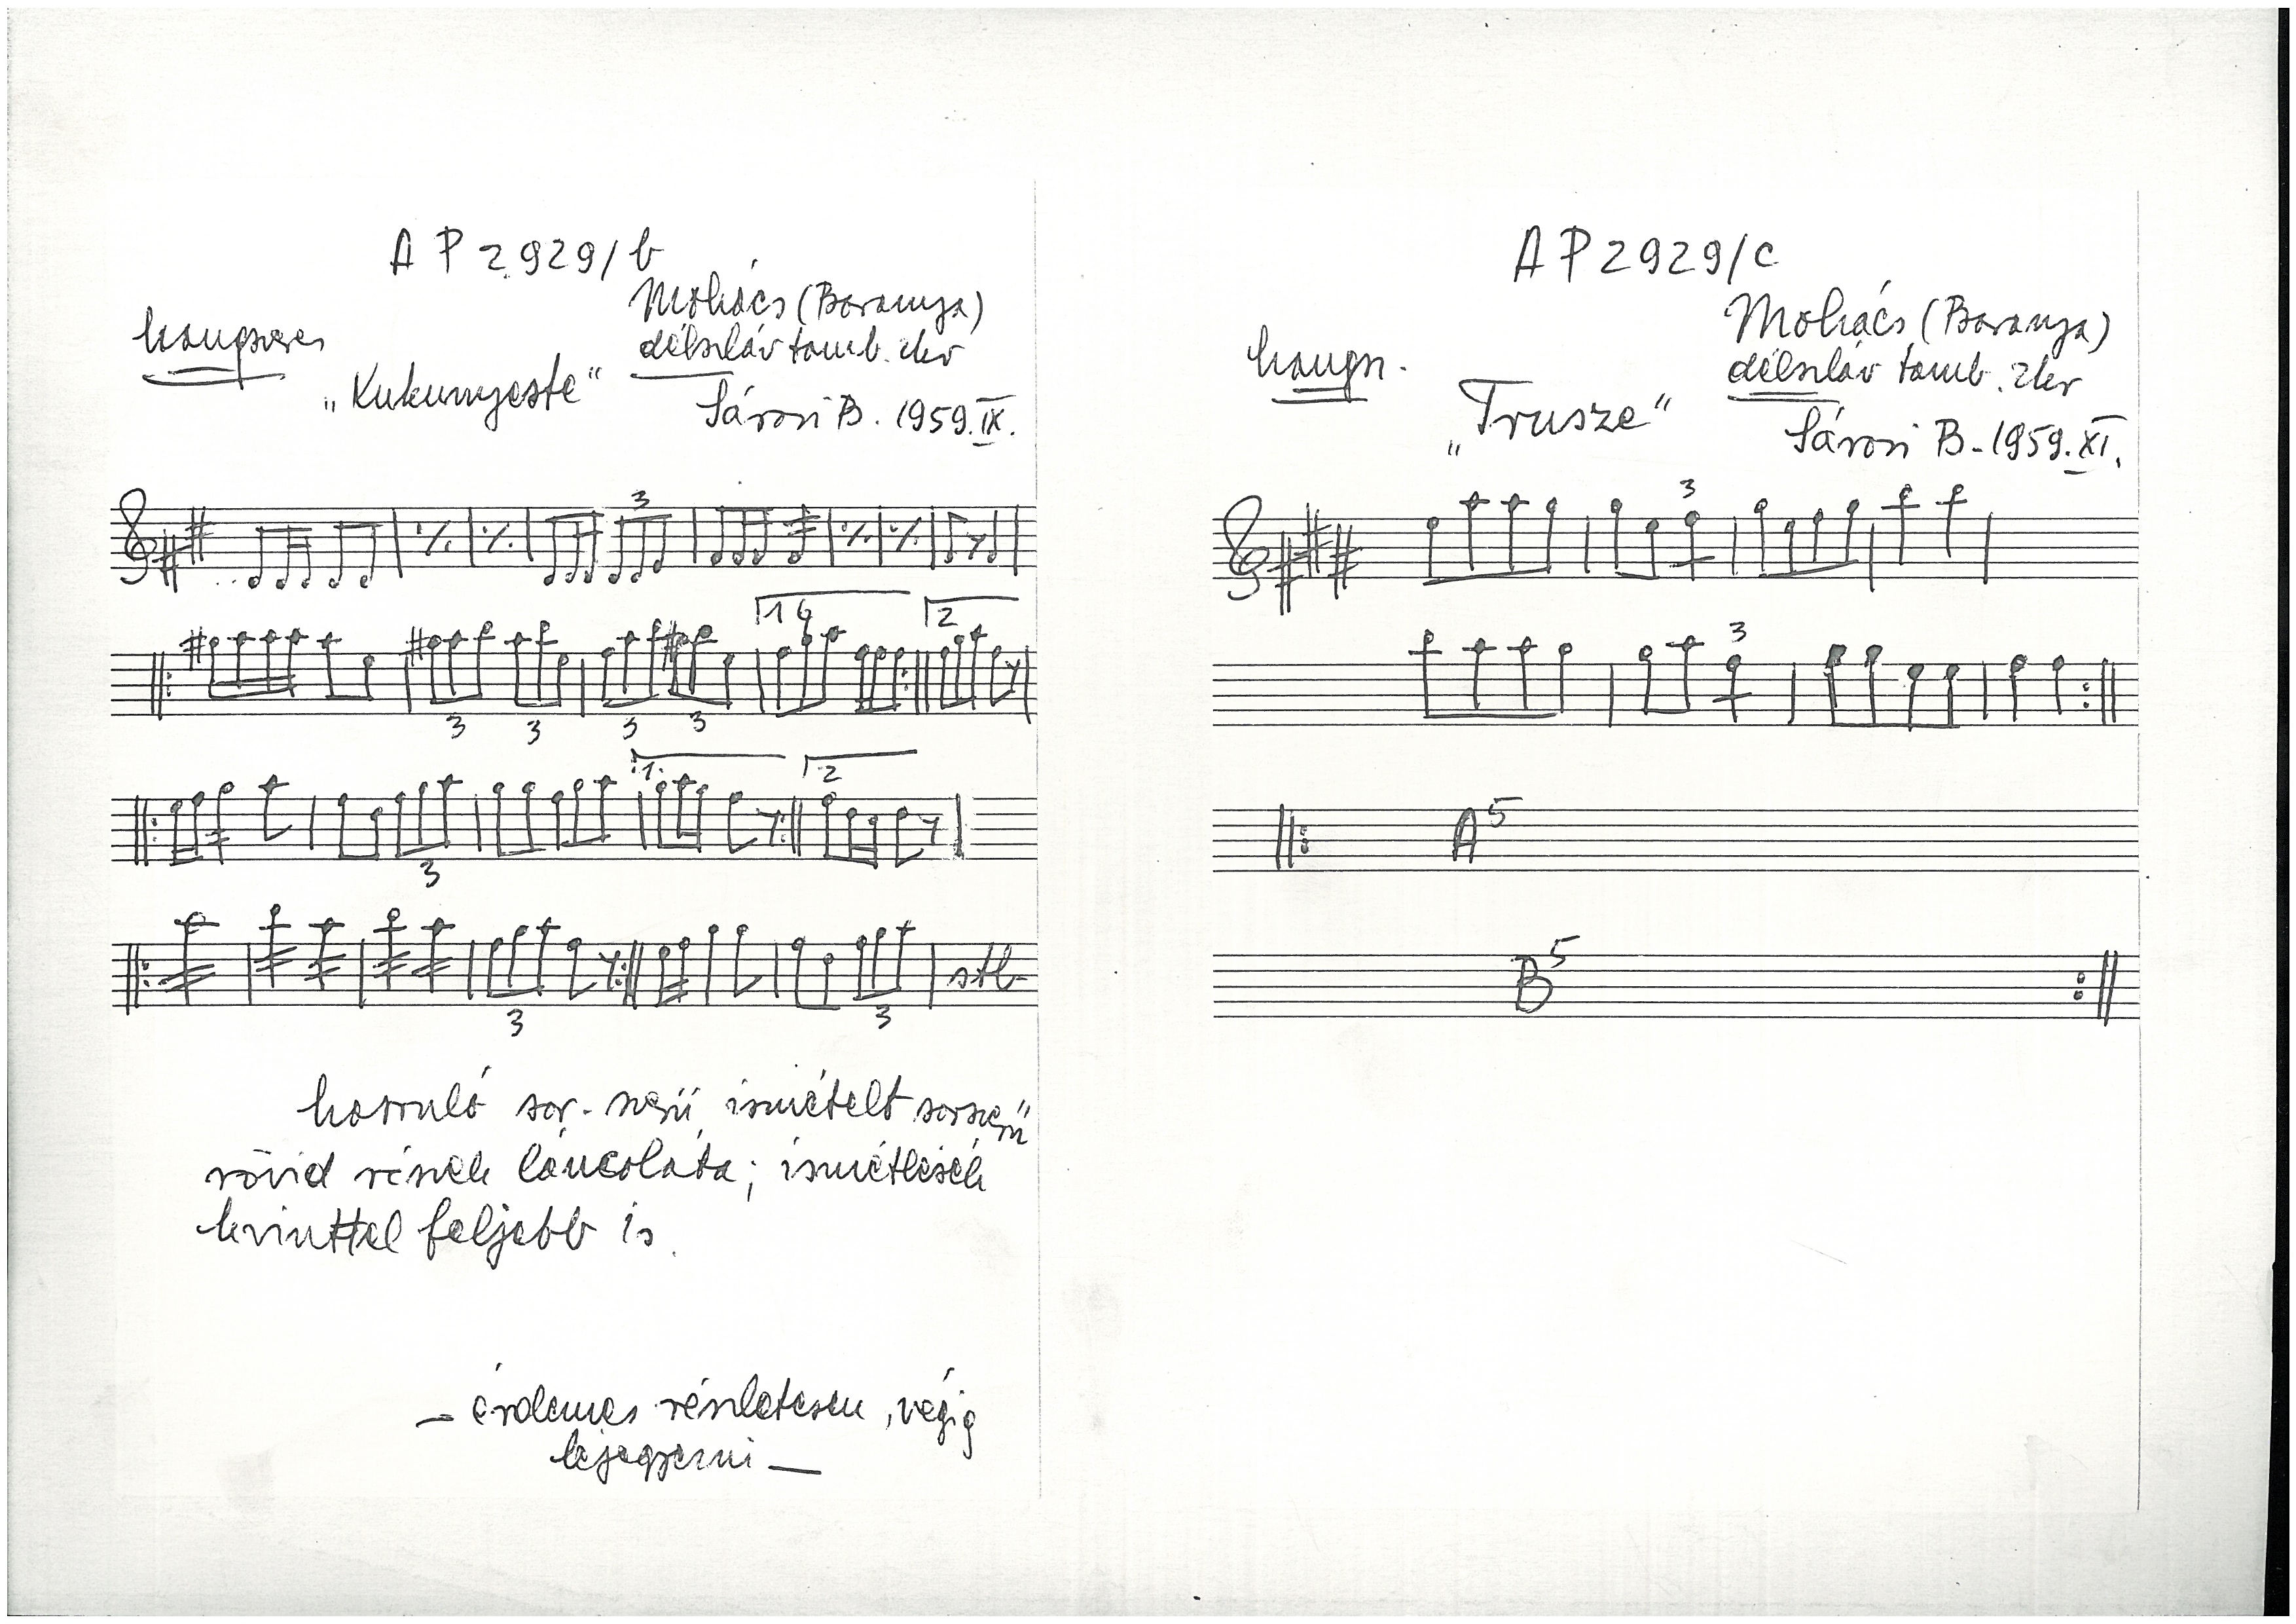 A P 2929/b
Mohács (Baranya)
hangszeres
délszláv tamb. zkr
„Kukunyeste"
Sárosi B. 1959. IX.
3
1
2
3 3 3 3
1.
2
3
stb.
3 3
hasonló sor-szerű, ismételt sorszerű
rövid részek láncolata; ismétlések
kvinttel feljebb is.
— érdemes részletesen, végig
lejegyezni —
A P 2929/c
Mohács (Baranya)
hangsz.
délszláv tamb. zkr
„Trusze"
Sárosi B. 1959. XI.
3
3
A5
B5